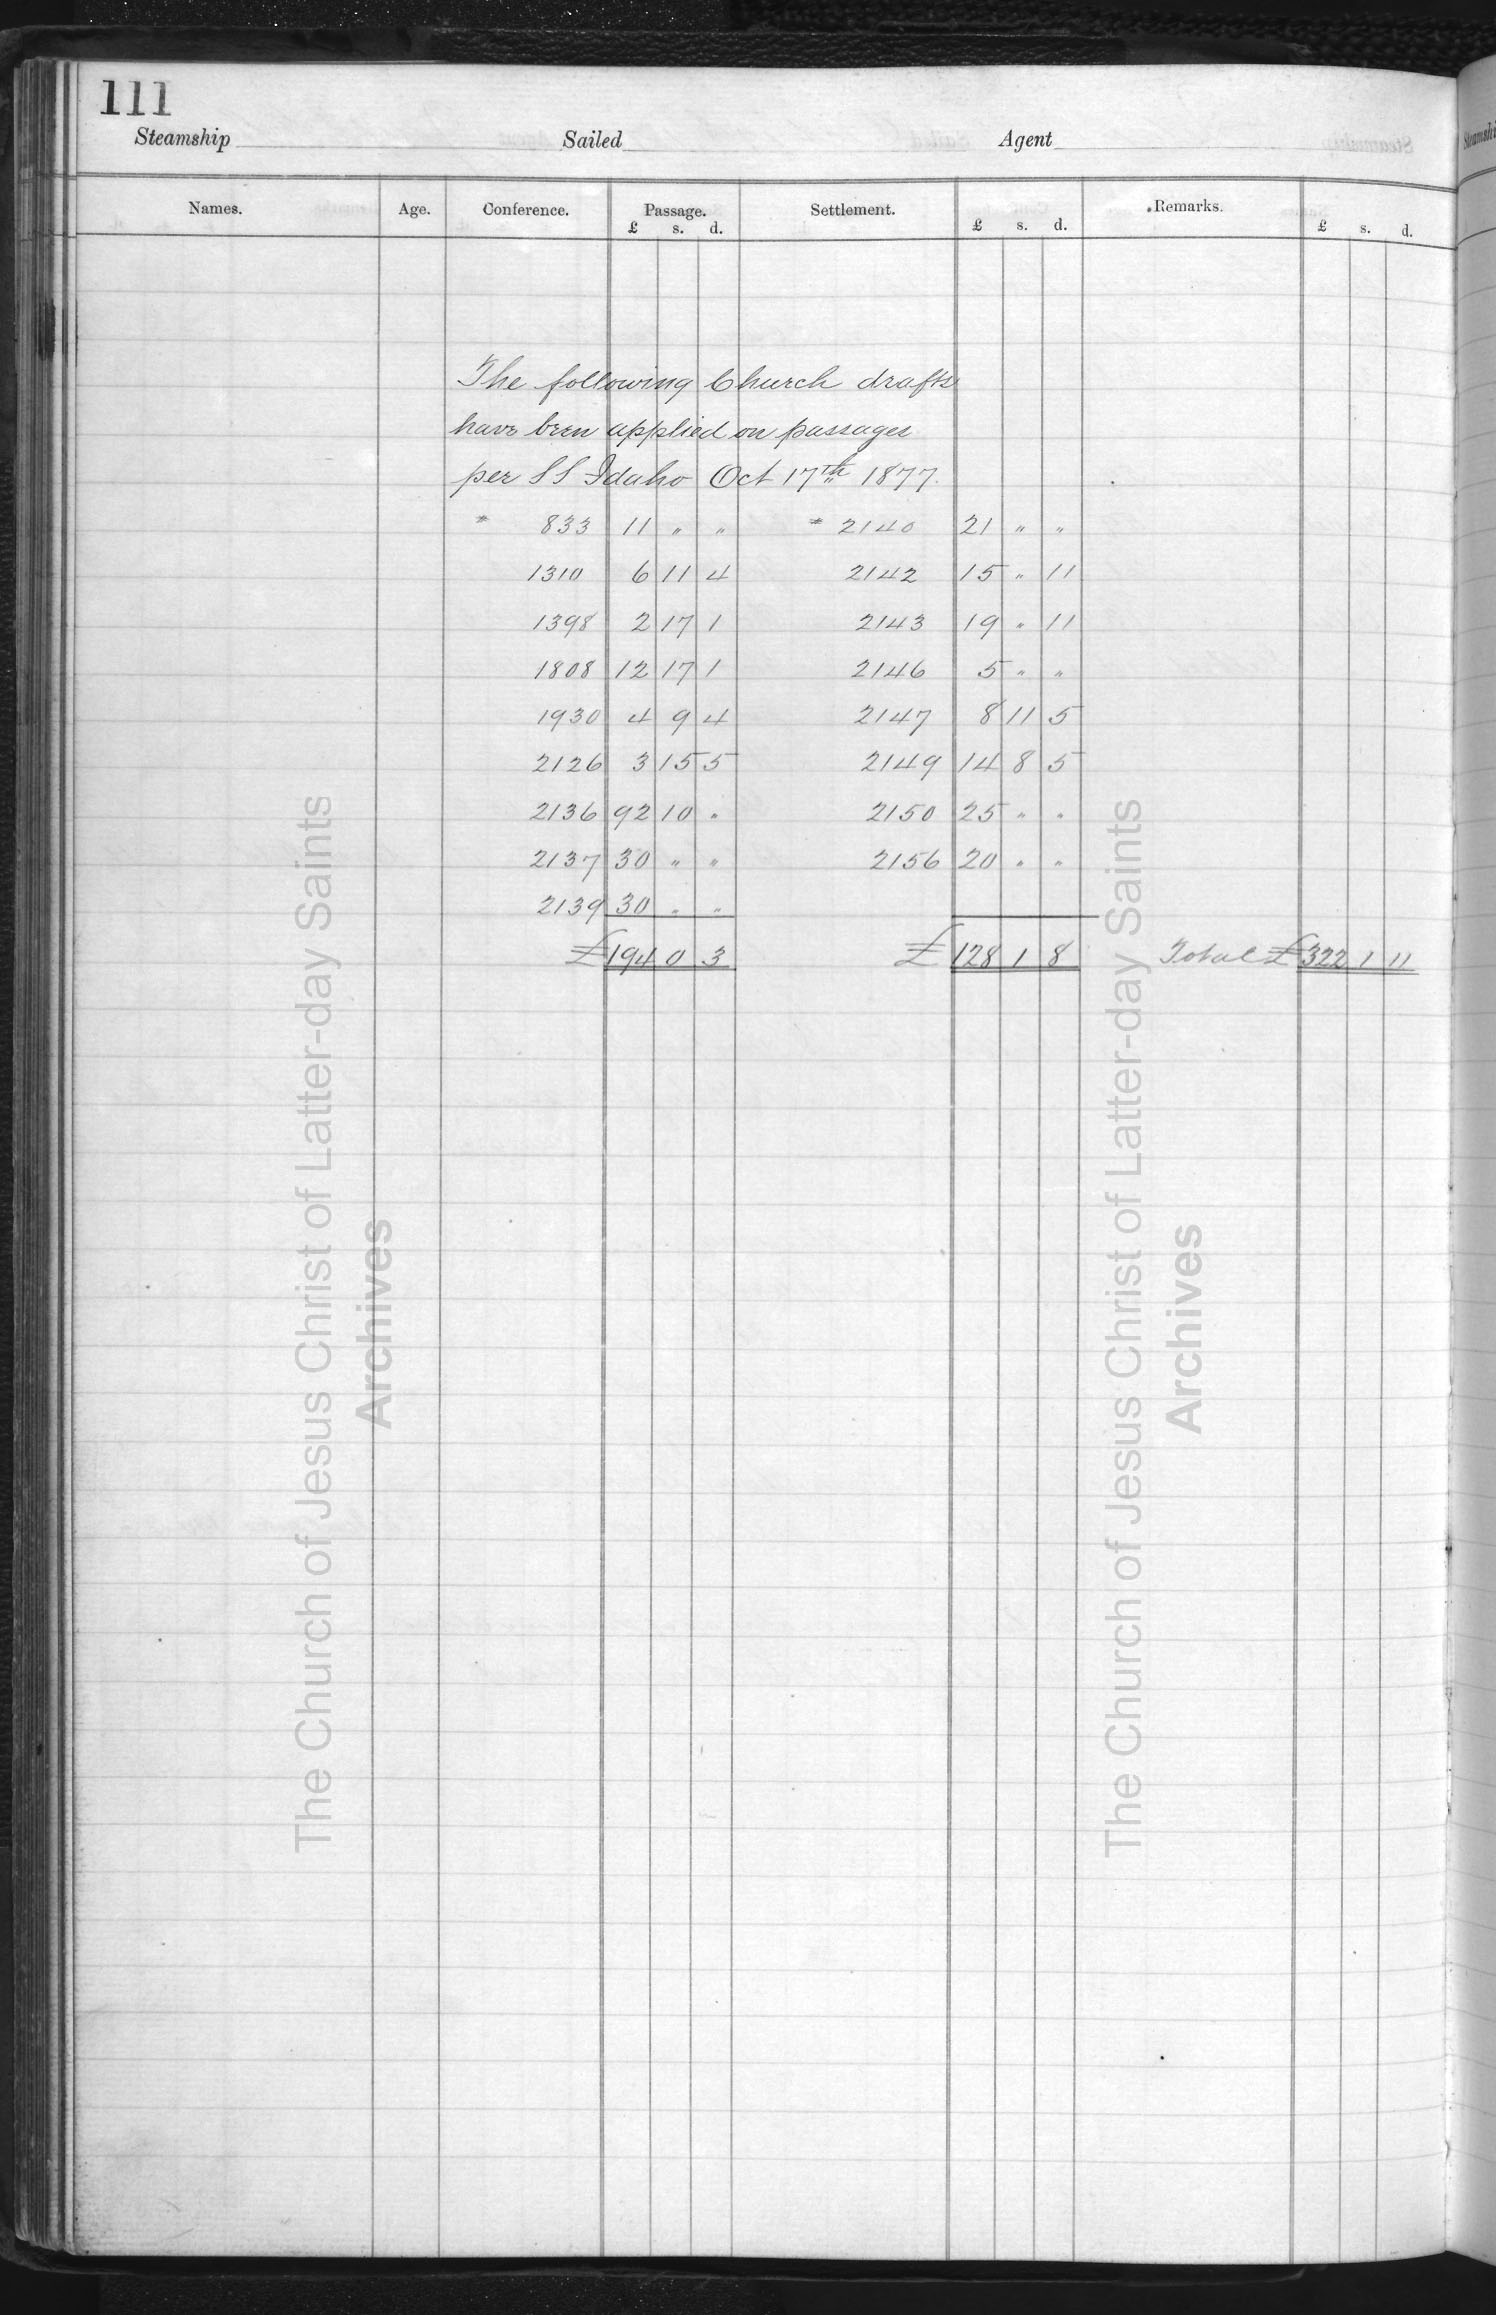 111
Steamship Sailed Agent
Names. Age. Conference. Passage. Settlement. Remarks.
£ s. d. £ s. d. £ s. d.
The following Church drafts
have been applied on passages
per SS Idaho Oct 17th 1877.
* 833 11 " " * 2140 21 " "
1310 6 11 4 2142 15 " 11
1398 2 17 1 2143 19 " 11
1808 12 17 1 2146 5 " "
1930 4 9 4 2147 8 11 5
2126 3 15 5 2149 14 8 5
2136 92 10 " 2150 25 " "
2137 30 " " 2156 20 " "
2139 30 " "
£194 0 3 £128 1 8 Total £322 1 11
The Church of Jesus Christ of Latter-day Saints
Archives
The Church of Jesus Christ of Latter-day Saints
Archives